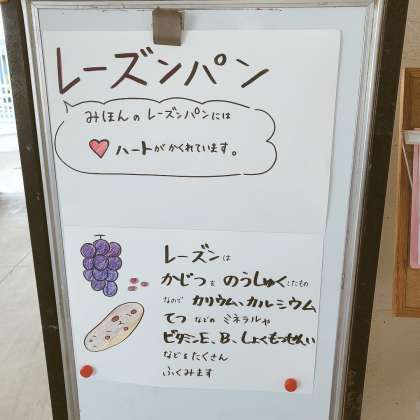 レーズンパン
みほんの レーズンパンには
ハートが かくれています。
レーズンは
かじつを のうしゅくしたもの
なので カリウム、カルシウム
てつ などの ミネラルや
ビタミンE、B、しょくもつせんい
などをたくさん
ふくみます